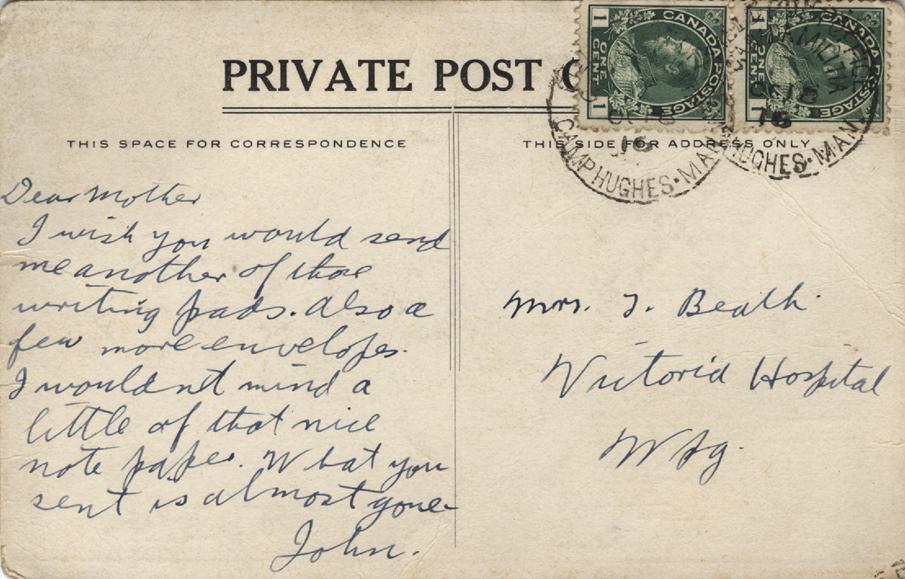 PRIVATE POST C
THIS SPACE FOR CORRESPONDENCE
THIS SIDE FOR ADDRESS ONLY
1 CENT 1
CANADA POSTAGE
1 CENT 1
CANADA POSTAGE
OC 16
16
CAMP HUGHES · MAN
OC 16
16
HUGHES · MAN
Dear Mother
I wish you would send
me another of those
writing pads. Also a
few more envelopes.
I wouldn't mind a
little of that nice
note paper. What you
sent is almost gone
John.
Mrs. J. Beath.
Victoria Hospital
Wpg.